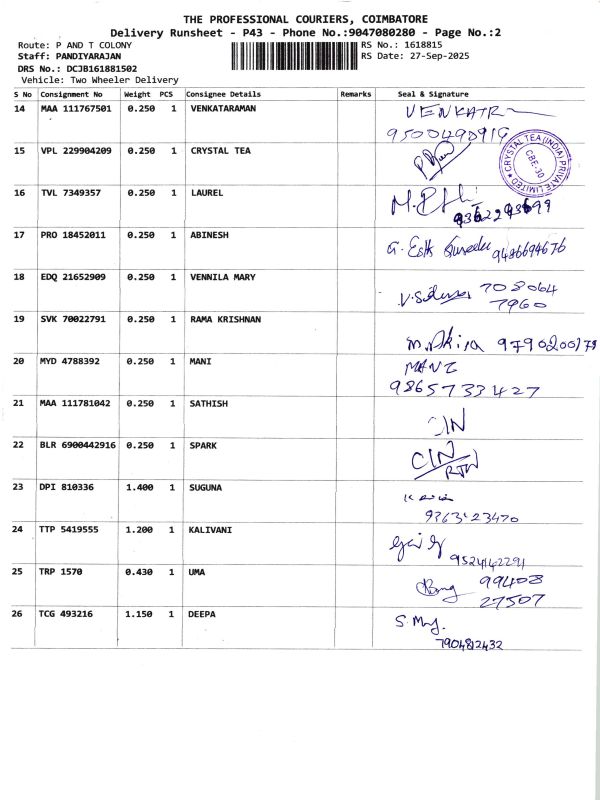 THE PROFESSIONAL COURIERS, COIMBATORE
Delivery Runsheet - P43 - Phone No.:9047080280 - Page No.:2
Route: P AND T COLONY
RS No.: 1618815
Staff: PANDIYARAJAN
RS Date: 27-Sep-2025
DRS No.: DCJB161881502
Vehicle: Two Wheeler Delivery
S No Consignment No Weight PCS Consignee Details Remarks Seal & Signature
14 MAA 111767501 0.250 1 VENKATARAMAN
9500490919
15 VPL 229904209 0.250 1 CRYSTAL TEA
CRYSTAL TEA (INDIA) PRIVATE LIMITED
CBE-30
16 TVL 7349357 0.250 1 LAUREL
17 PRO 18452011 0.250 1 ABINESH
9486694676
18 EDQ 21652909 0.250 1 VENNILA MARY
708064
7960
19 SVK 70022791 0.250 1 RAMA KRISHNAN
9790200179
20 MYD 4788392 0.250 1 MANI
MANI
9865733427
21 MAA 111781042 0.250 1 SATHISH
CIN
22 BLR 6900442916 0.250 1 SPARK
CIN
RTN
23 DPI 810336 1.400 1 SUGUNA
9363123470
24 TTP 5419555 1.200 1 KALIVANI
9524142291
25 TRP 1570 0.430 1 UMA
99408
27507
26 TCG 493216 1.150 1 DEEPA
7904812432